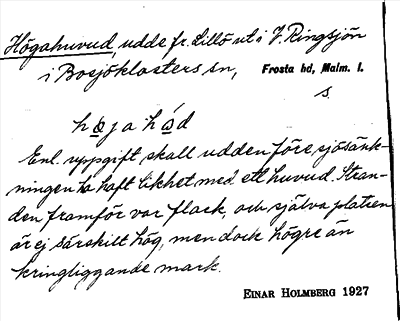 Högahuvud, udde fr. Lillö ut i V. Ringsjön
i Bosjöklosters sn, Frosta hd, Malm. l.
s.
høja hǻd
Enl. uppgift skall udden före sjösänk-
ningen ha haft likhet med ett huvud. Stran-
den framför var flack, och själva platsen
är ej särskilt hög, men dock högre än
kringliggande mark.
EINAR HOLMBERG 1927